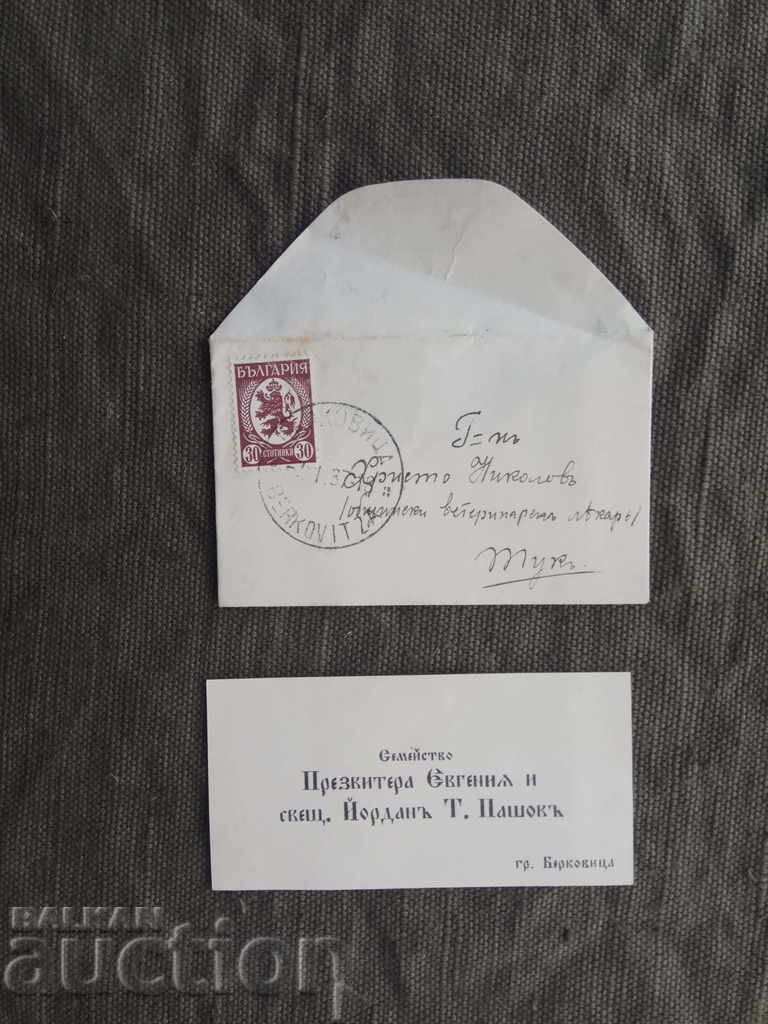 БЪЛГАРИЯ
30 СТОТИНКИ 30
БЕРКОВИЦА
1.37
BERKOVITZA
Г=нъ
Христо Николовъ
/общински ветеринаренъ лѣкарь/
Тукъ.
Семейство
Презвитера Евгения и
свещ. Йорданъ Т. Пашовъ
гр. Берковица
BALKAN
auction